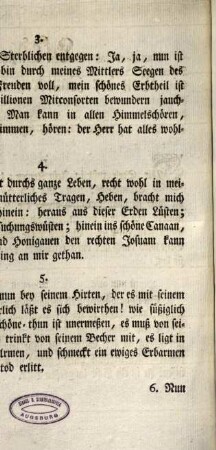 3.
Sterblichen entgegen: Ja, ja, nun ist
bin durch meines Mittlers Seegen des
reuden voll, mein schönes Erbtheil ist
illionen Mitconsorten bewundern jauch-
Man kann in allen Himmelschören,
immen, hören: der Herr hat alles wohl-
4.
t durchs ganze Leben, recht wohl in mei-
mütterliches Tragen, Heben, bracht mich
hinein: heraus aus dieser Erden Lüsten;
suchungswüsten; hinein ins schöne Canaan,
nd Honiganen den rechten Josuam kann
ing an mir gethan.
5.
nun bey seinem Hirten, der es mit seinem
rlich läßt es sich bewirthen! wie süßiglich
schöne-thun ist unermeßen, es muß von sei-
trinkt von seinem Becher mit, es ligt in
Armen, und schmeckt ein ewiges Erbarmen
tod erlitt.
6. Nun
AUGSBURG